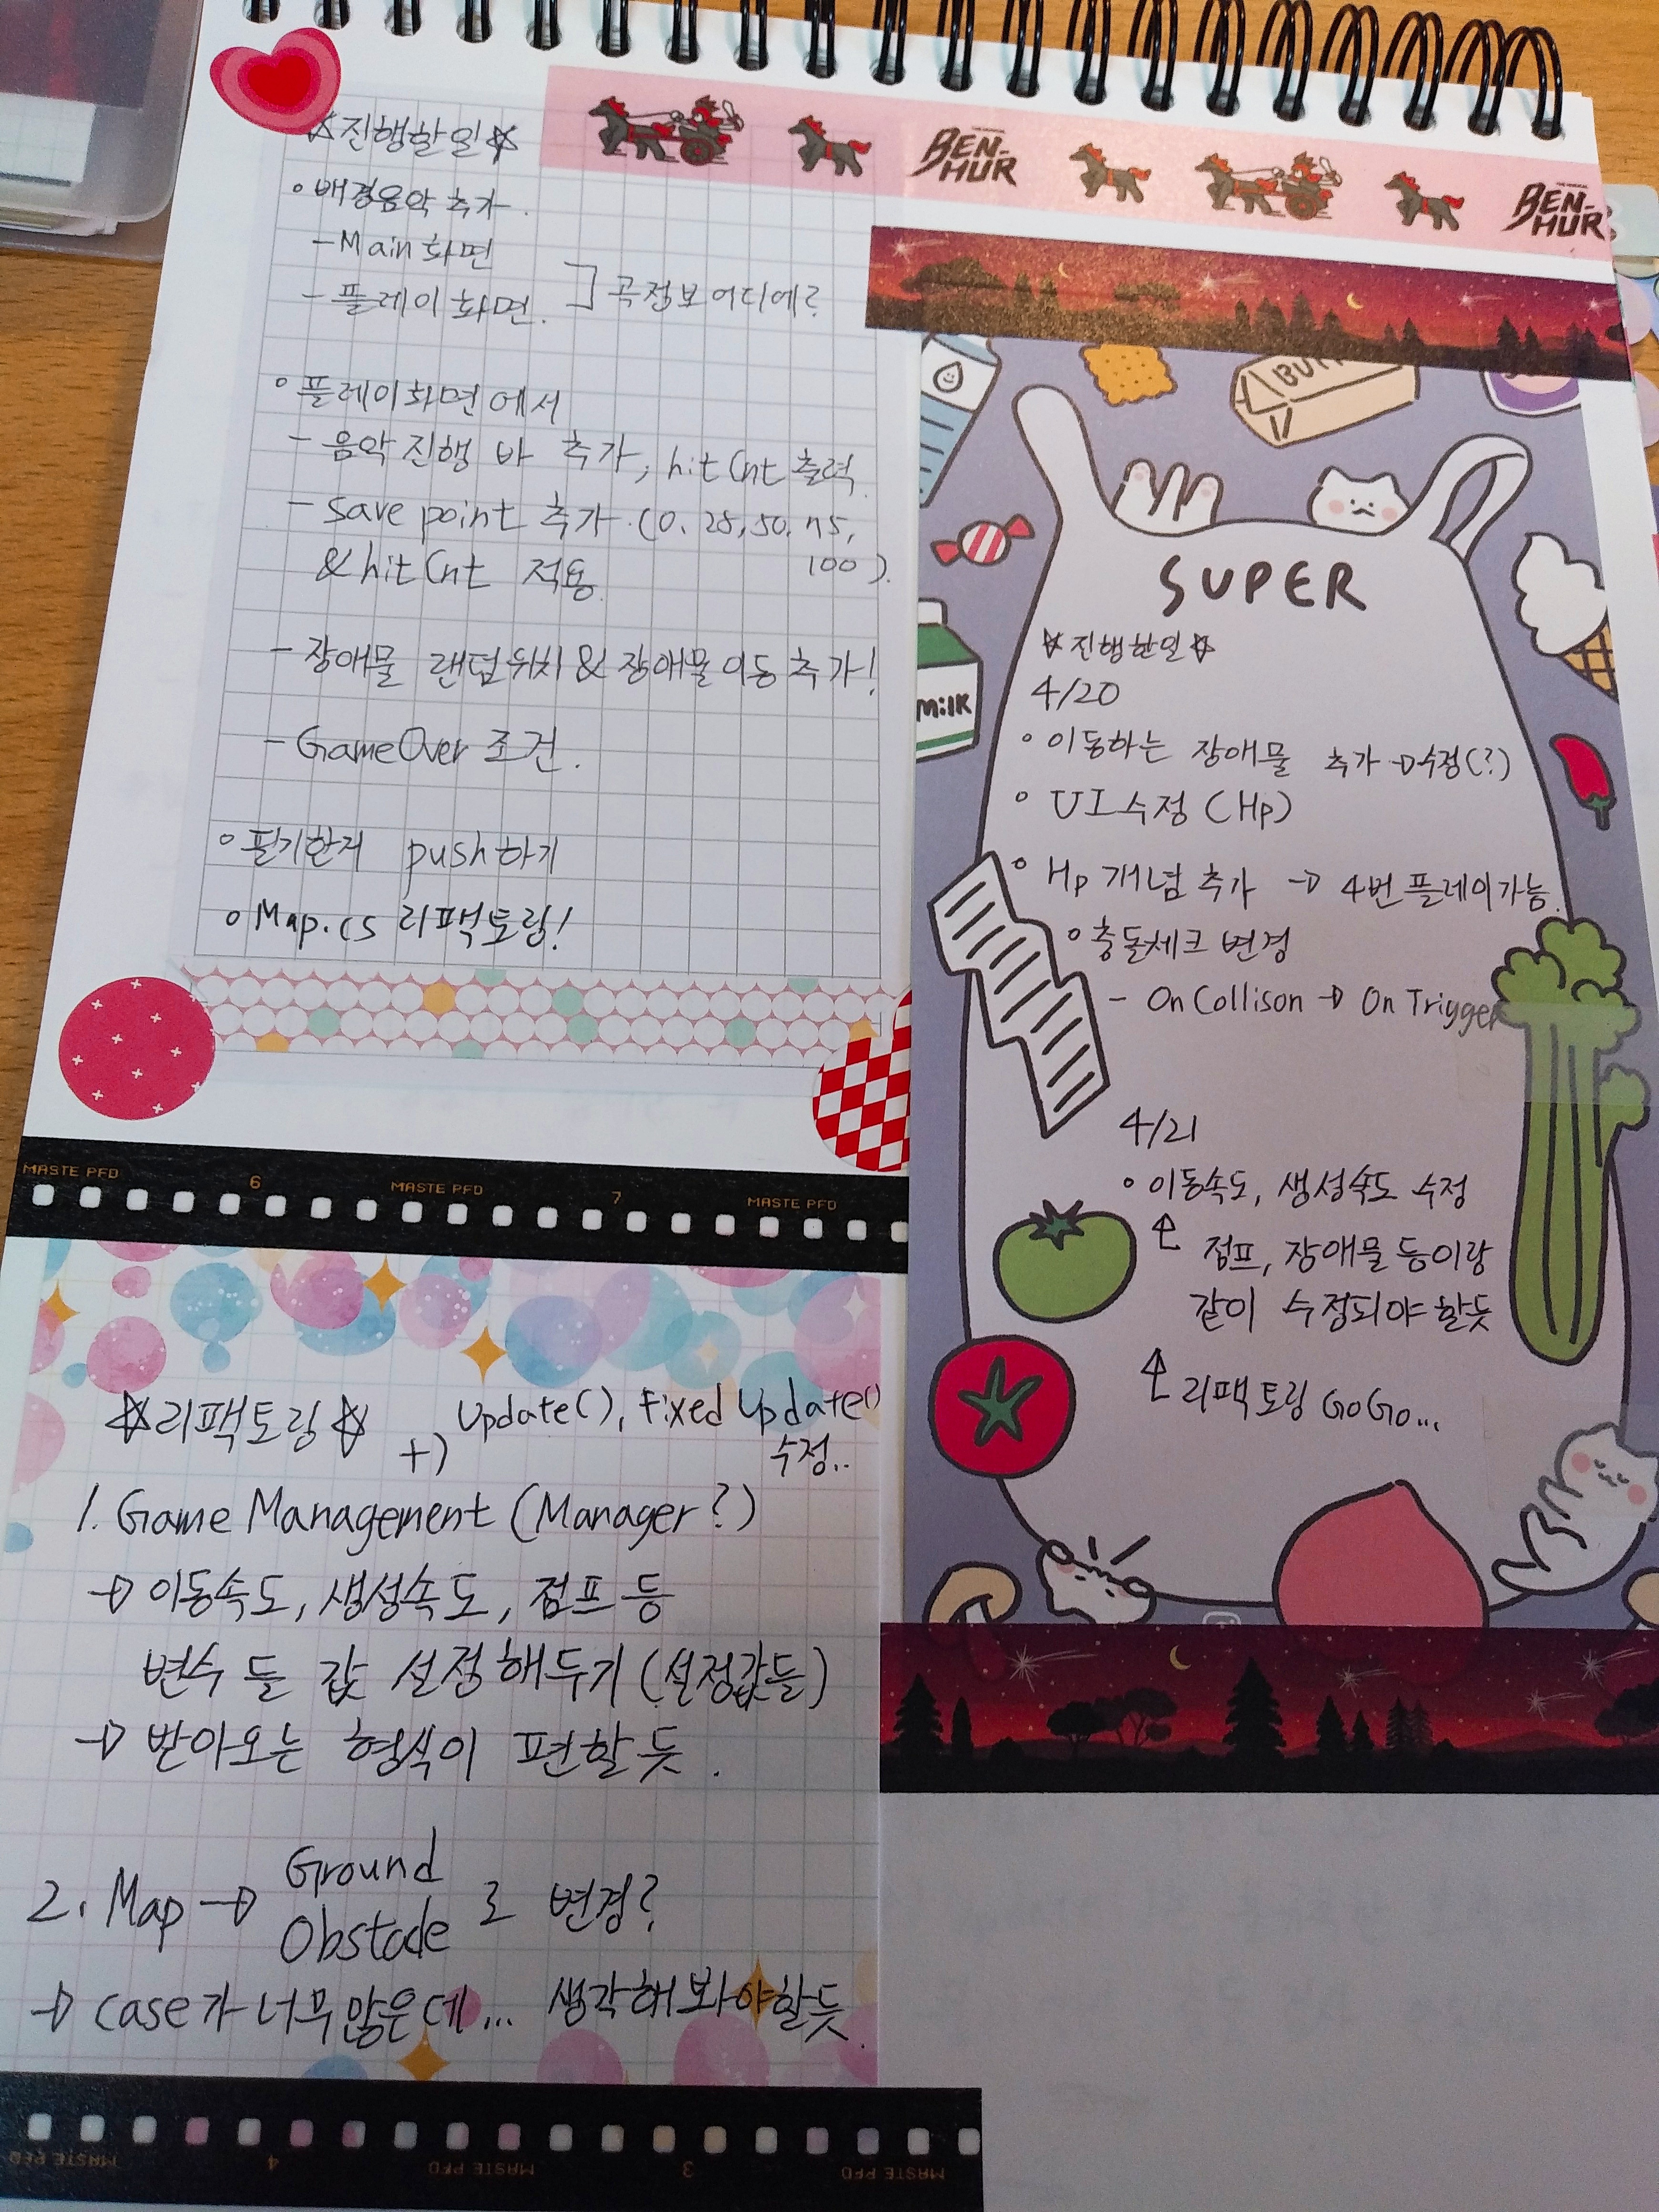 ☆진행할일☆
◦ 배경음악 추가.
- Main 화면
- 플레이 화면. ] 곡정보 어디에?
◦ 플레이화면에서
- 음악 진행 바 추가, hitCnt 출력.
- save point 추가 (0. 25, 50. 75, 100).
& hitCnt 적용.
- 장애물 랜덤위치 & 장애물 이동 추가!
- GameOver 조건.
◦ 필기한거 push하기
◦ Map.cs 리팩토링!
BEN-HUR
BEN-HUR
BUTT
MiLK
SUPER
☆진행한일☆
4/20
◦ 이동하는 장애물 추가 → 수정(?)
◦ UI수정 (Hp)
◦ Hp 개념 추가 → 4번 플레이가능.
◦ 충돌체크 변경
- OnCollison → OnTrigger
4/21
◦ 이동속도, 생성속도 수정
↑ 점프, 장애물 등이랑
같이 수정되야 할듯
↑ 리팩토링 GoGo...
MASTE PFD 6 MASTE PFD 7 MASTE PFD
☆리팩토링☆ +) Update(), Fixed Update()
수정..
1. Game Management (Manager?)
→ 이동속도, 생성속도, 점프 등
변수 들 값 설정해두기 (설정값들)
→ 받아오는 형식이 편할 듯.
2. Map → Ground
Obstacle 로 변경?
→ case가 너무많은데... 생각해봐야할듯.
MASTE PFD 3 MASTE PFD 4 MASTE PFD